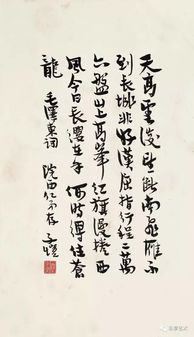 天高雲淡望斷南飛雁不
到長城非好漢屈指行程二萬
六盤山上高峯紅旗漫捲西
風今日長纓在手何時縛住蒼
龍 毛澤東词 西仁弟存 子愷